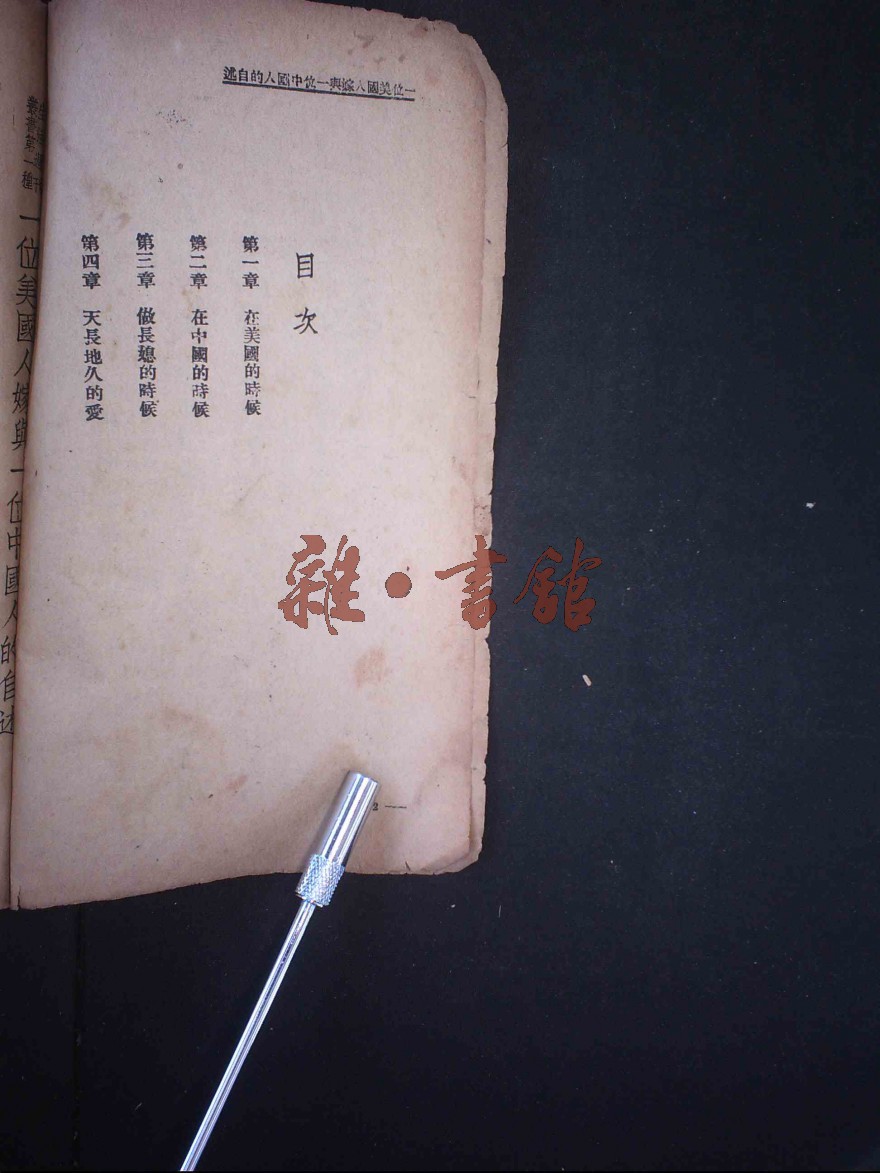 一位美國人嫁與一位中國人的自述
目次
第一章 在美國的時候
第二章 在中國的時候
第三章 做長媳的時候
第四章 天長地久的愛
2 —
叢書第一種
一位美國人嫁與一位中國人的自述
雜·書館